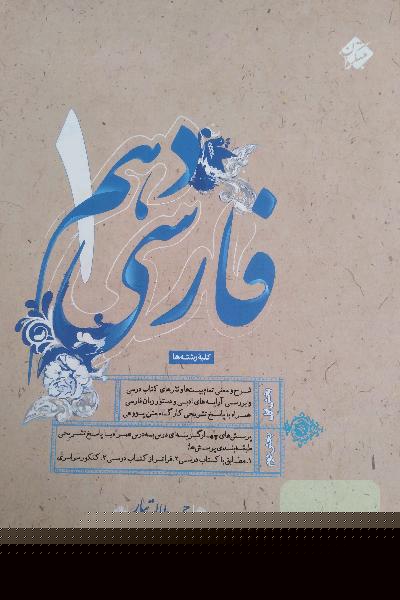 مبتکران
فارسی دهم
۱
کلیه رشته‌ها
شرح و معنی تمام بیت‌ها و نثرهای کتاب درسی
و بررسی آرایه‌های ادبی و دستور زبان فارسی
همراه با پاسخ تشریحی کارگاه متن پژوهی
پرسش‌های چهارگزینه‌ای درس به درس همراه با پاسخ تشریحی
طبقه‌بندی پرسش‌ها:
۱. مطابق با کتاب درسی ۲. فراتر از کتاب درسی ۳. کنکور سراسری